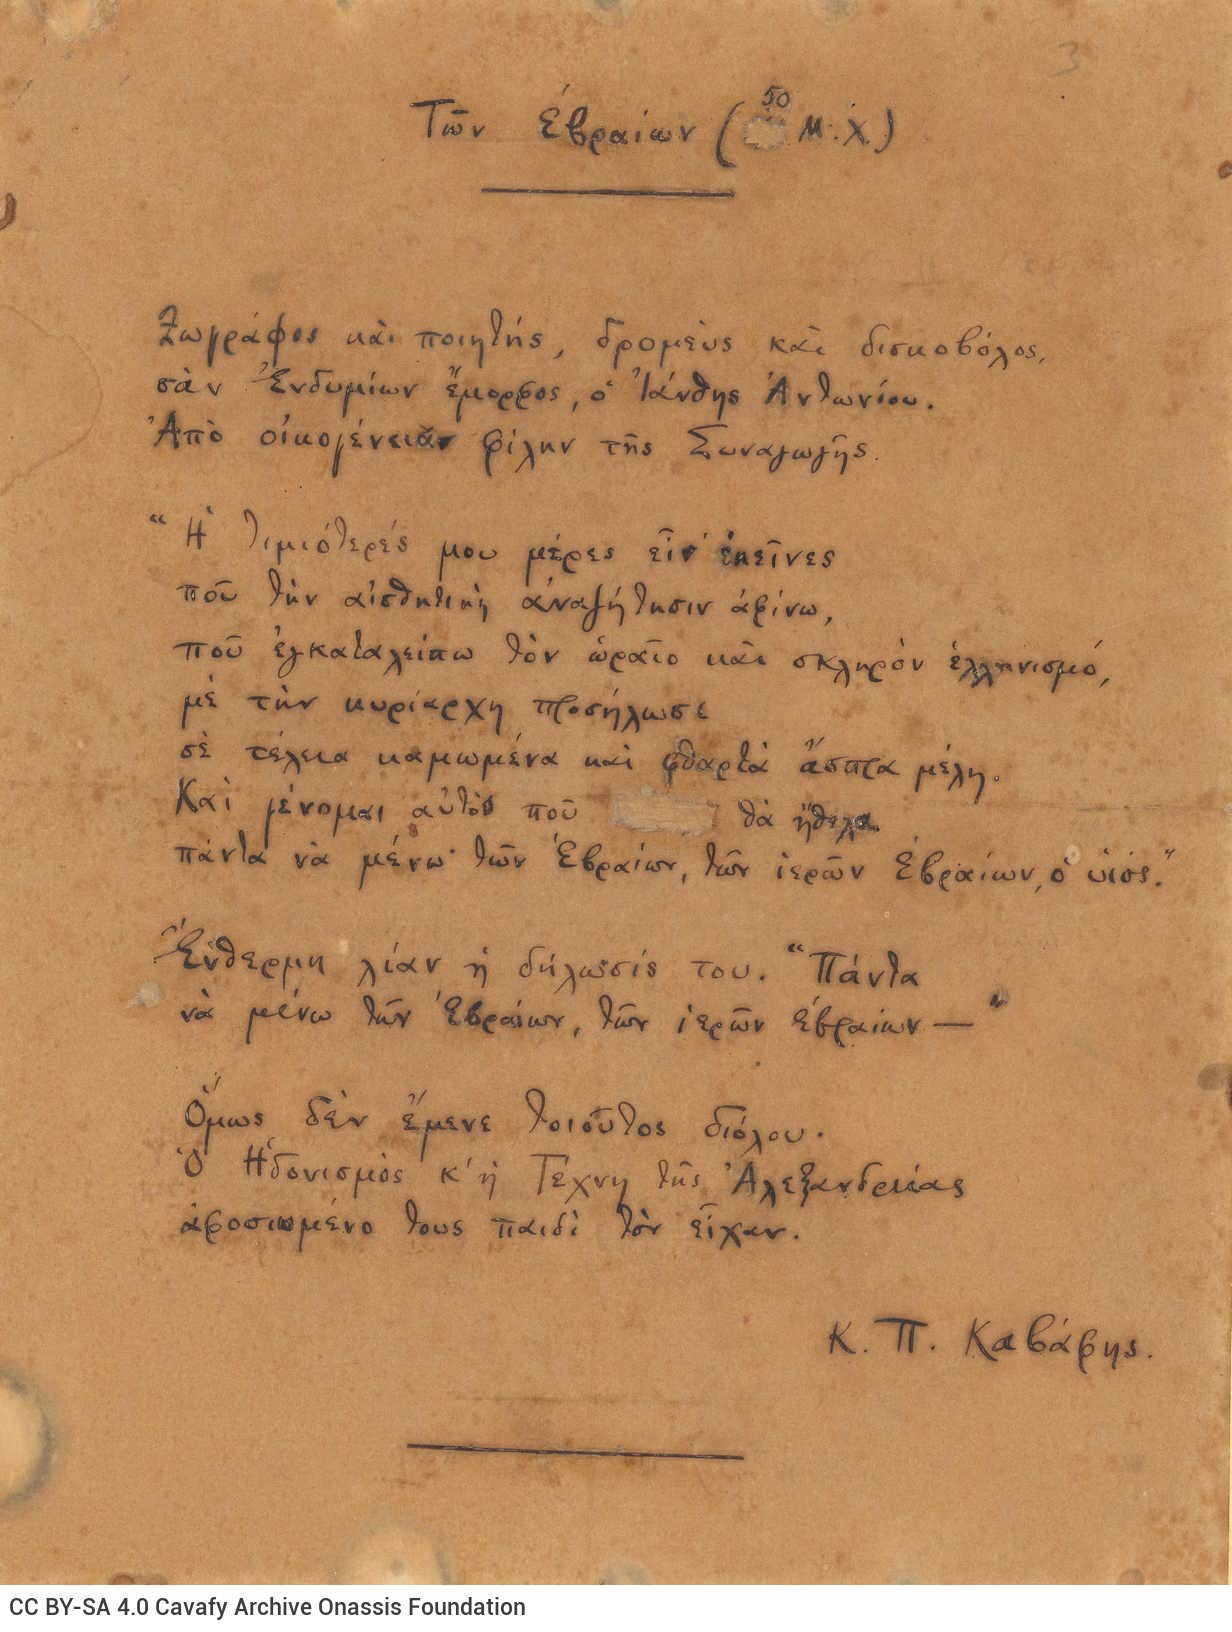 3
Τῶν Ἑβραίων (50 μ.Χ.)
Ζωγράφος καὶ ποιητής, δρομεὺς καὶ δισκοβόλος,
σὰν Ἐνδυμίων ἔμορφος, ὁ Ἰάνθης Ἀντωνίου.
Ἀπὸ οἰκογένειαν φίλην τῆς Συναγωγῆς.
“Ἡ τιμιότερές μου μέρες εἶν’ ἐκεῖνες
ποῦ τὴν αἰσθητικὴ ἀναζήτησιν ἀφίνω,
ποῦ ἐγκαταλείπω τὸν ὡραῖο καὶ σκληρὸν ἑλληνισμό,
μὲ τὴν κυρίαρχη προσήλωσι
σὲ τέλεια καμωμένα καὶ φθαρτὰ ἄσπρα μέλη.
Καὶ γένομαι αὐτὸς ποῦ θὰ ἤθελα
πάντα νὰ μένω· τῶν Ἑβραίων, τῶν ἱερῶν Ἑβραίων, ὁ υἱός.”
Ἔνθερμη λίαν ἡ δήλωσίς του. “Πάντα
νὰ μένω τῶν Ἑβραίων, τῶν ἱερῶν Ἑβραίων —”
Ὅμως δὲν ἔμενε τοιοῦτος διόλου.
Ὁ Ἡδονισμὸς κ’ ἡ Τέχνη τῆς Ἀλεξανδρείας
ἀφοσιωμένο τους παιδὶ τὸν εἶχαν.
Κ. Π. Καβάφης.
CC BY-SA 4.0 Cavafy Archive Onassis Foundation